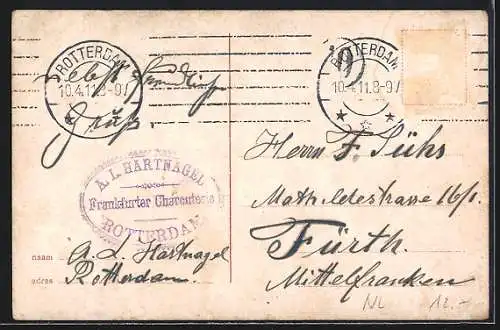 ROTTERDAM
10.4.11.8-9V
nebst
Gruß.
A. L. HARTNAGEL
Frankfurter Charcuterie
ROTTERDAM
naam A. L. Hartnagel
adres Rotterdam.
ROTTERDAM
10.4.11.8-9V
Herrn F. Sühs
Mathildestrasse 16/I.
Fürth.
Mittelfranken
NL 12.-